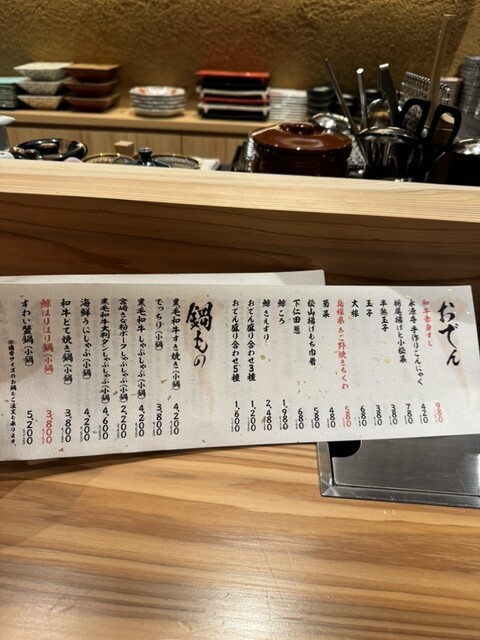 おでん
和牛赤身すし 980
永源寺 手作りこんにゃく 420
栃尾揚げと小松菜 780
半熟玉子 380
玉子
大根
島根県あご野焼きちくわ 580
菊菜 480
松山揚げもち巾着 580
下仁田葱 680
鯨ころ 1,980
鯨さえずり 2,480
おでん盛り合わせ3種 1,200
おでん盛り合わせ5種 1,600
鍋もの
黒毛和牛すき焼き(小鍋) 4,200
てっちり(小鍋) 3,800
黒毛和牛しゃぶしゃぶ(小鍋) 4,200
宮崎きな粉ポークしゃぶしゃぶ(小鍋) 2,200
黒毛和牛大判タンしゃぶしゃぶ(小鍋) 4,600
海鮮うにしゃぶしゃぶ(小鍋) 4,200
和牛とて焼き鍋(小鍋) 3,800
鯨はりはり鍋(小鍋) 3,800
ずわい蟹鍋(小鍋) 5,200
※通常サイズのお鍋もご注文も承ります。